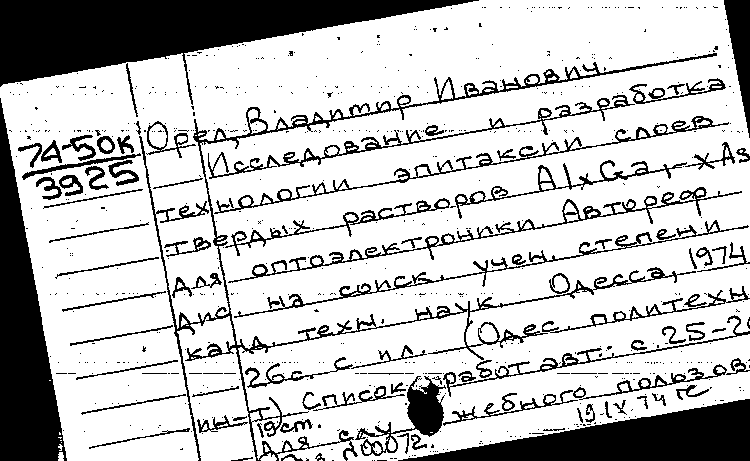 74-50к
3925
Орел, Владимир Иванович.
Исследование и разработка
технологии эпитаксии слоев
твердых растворов AlxGa1-xAs
для оптоэлектроники. Автореф.
дис. на соиск. учен. степени
канд. техн. наук. Одесса, 1974
26с. с ил. (Одес. политехн
ин-т) Список работ авт.: с. 25-2
19ст.
Для слу жебного пользов.
N00072. 19 IX 74 г